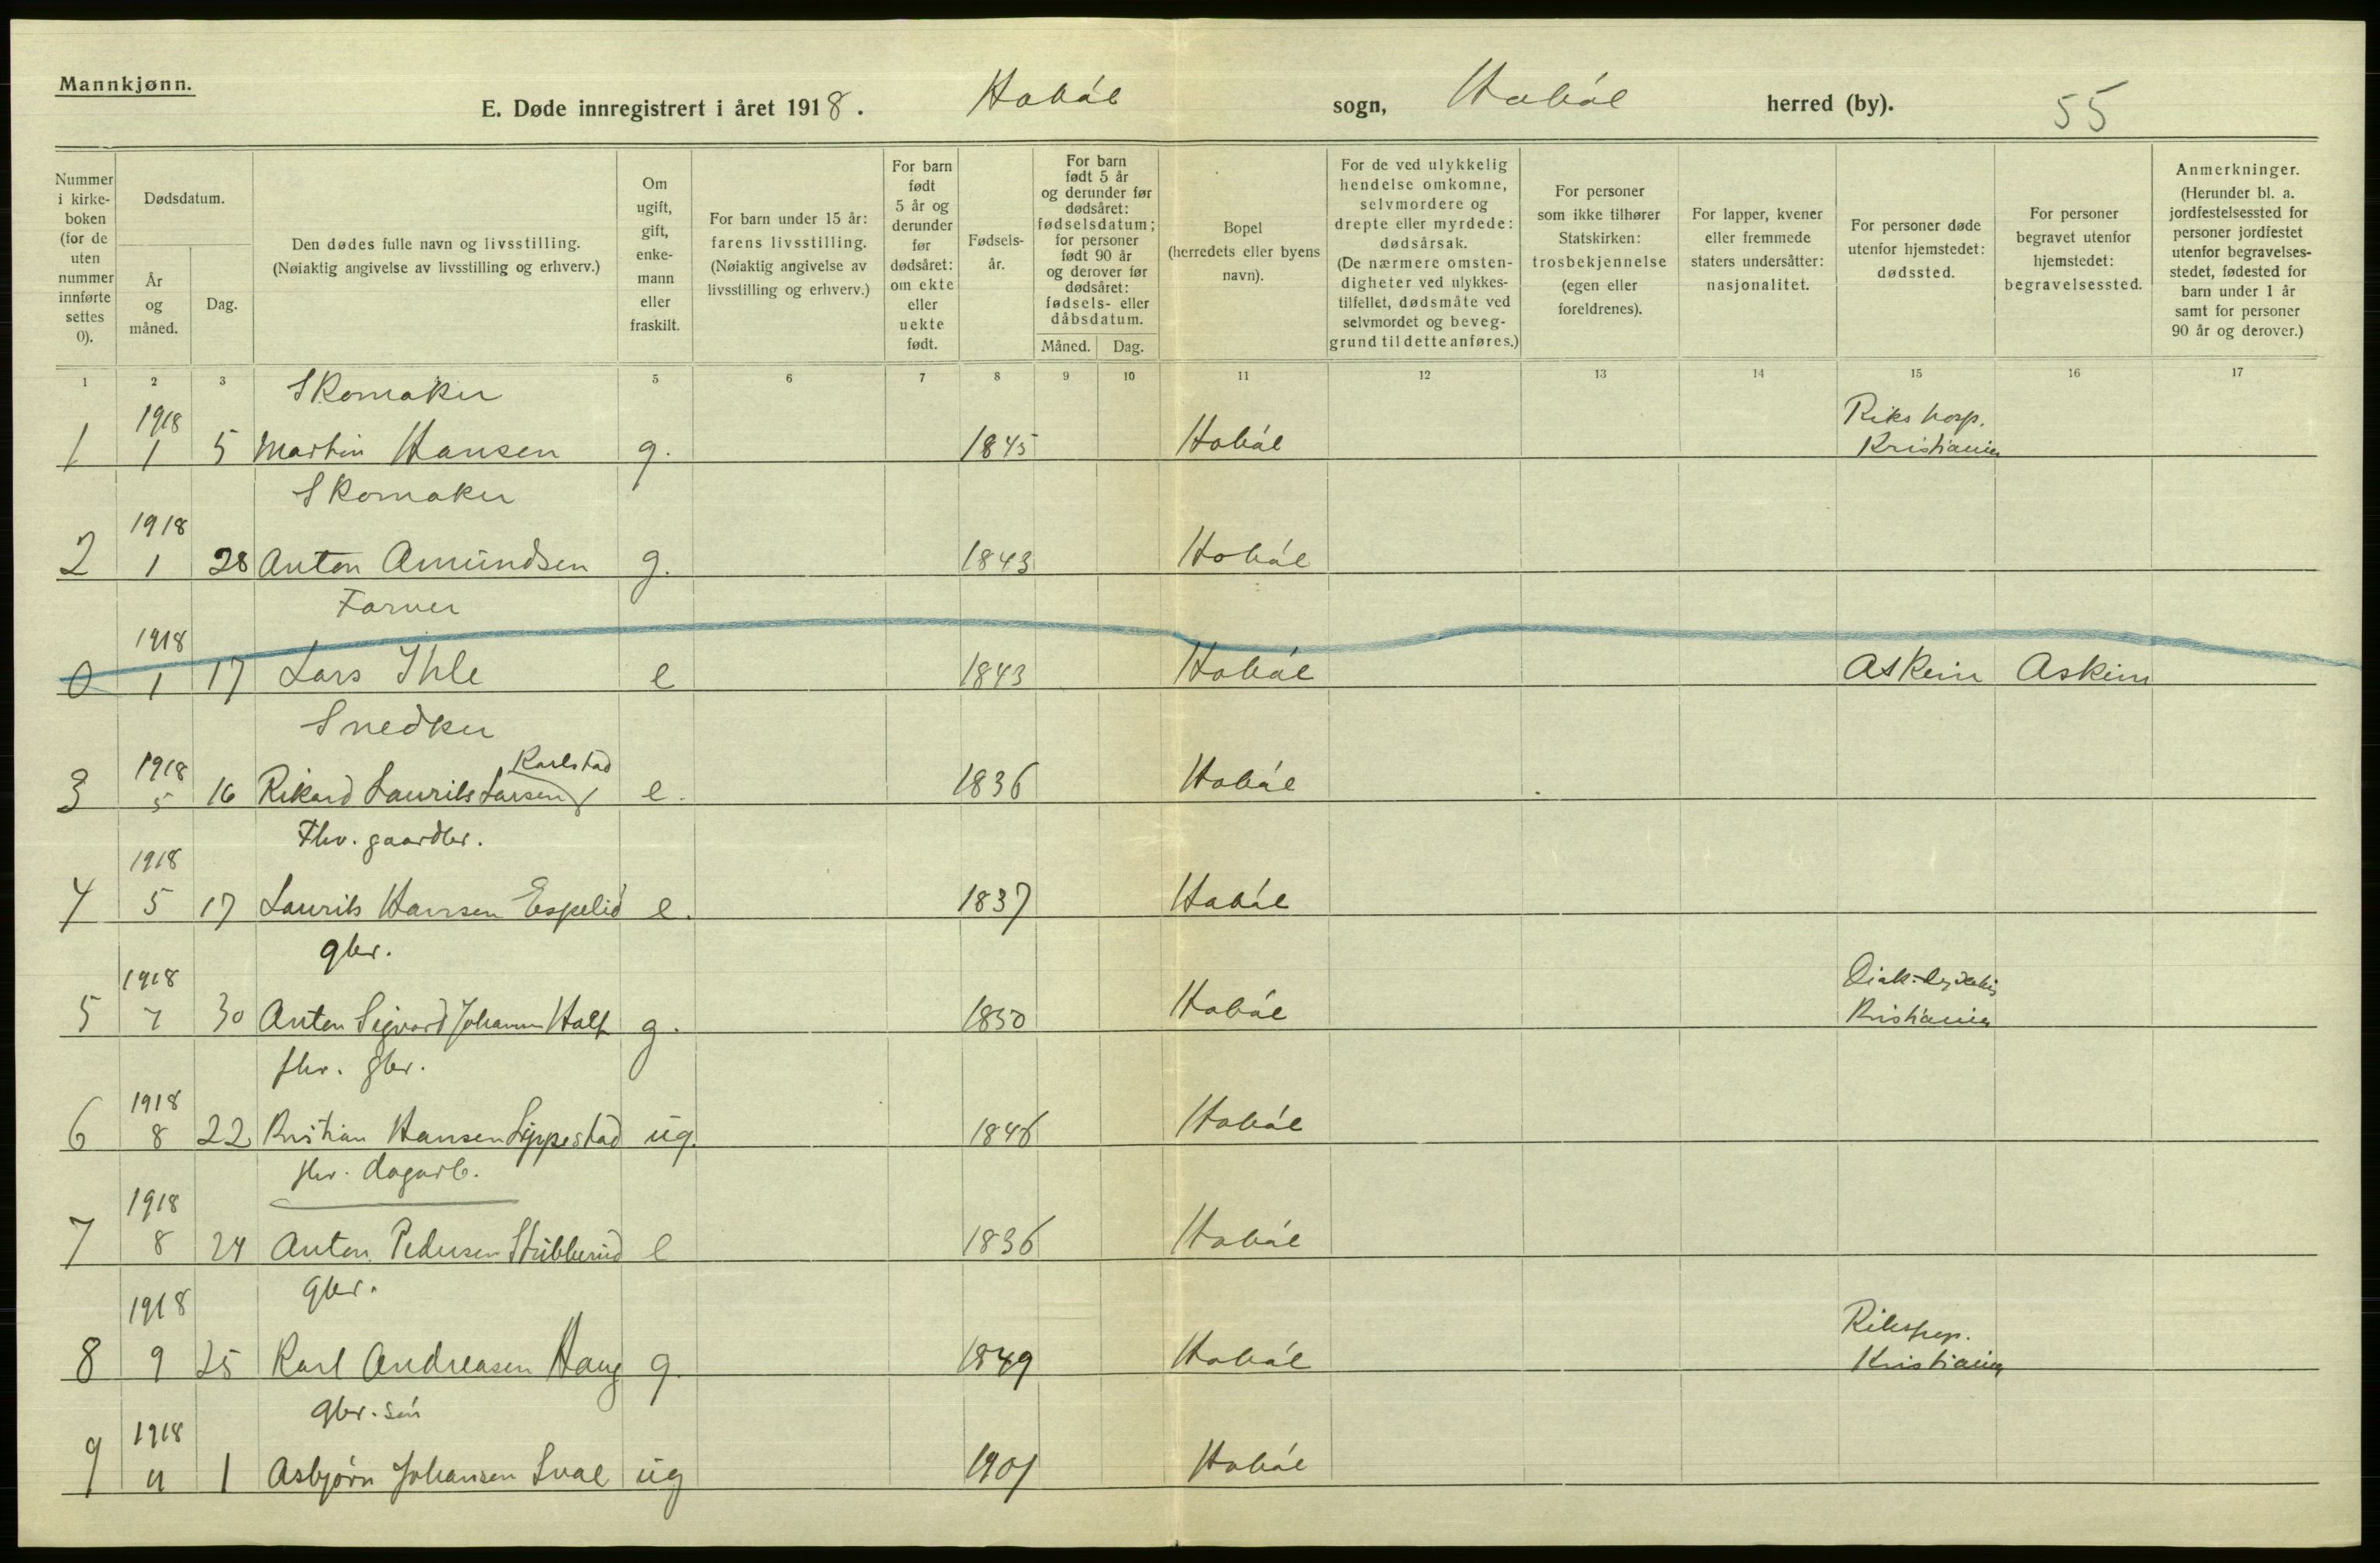 Mannkjønn.
E. Døde innregistrert i året 1918. Hobøl sogn, Hobøl herred (by). 55
Nummer i kirke-boken (for de uten nummer innførte settes 0).
Dødsdatum.
År og måned.
Dag.
Den dødes fulle navn og livsstilling.
(Nøiaktig angivelse av livsstilling og erhverv.)
Om ugift, gift, enke-mann eller fraskilt.
For barn under 15 år: farens livsstilling. (Nøiaktig angivelse av livsstilling og erhverv.)
For barn født 5 år og derunder før dødsåret: om ekte eller uekte født.
Fødsels-år.
For barn født 5 år og derunder før dødsåret: fødselsdatum; for personer født 90 år og derover før dødsåret: fødsels- eller dåbsdatum.
Måned. Dag.
Bopel (herredets eller byens navn).
For de ved ulykkelig hendelse omkomne, selvmordere og drepte eller myrdede: dødsårsak. (De nærmere omsten-digheter ved ulykkes-tilfellet, dødsmåte ved selvmordet og beveg-grund til dette anføres.)
For personer som ikke tilhører Statskirken: trosbekjennelse (egen eller foreldrenes).
For lapper, kvener eller fremmede staters undersåtter: nasjonalitet.
For personer døde utenfor hjemstedet: dødssted.
For personer begravet utenfor hjemstedet: begravelsessted.
Anmerkninger. (Herunder bl. a. jordfestelsessted for personer jordfestet utenfor begravelses-stedet, fødested for barn under 1 år samt for personer 90 år og derover.)
1 2 3 5 6 7 8 9 10 11 12 13 14 15 16 17
Skomaker
1918 Rikshosp.
1 1 5 Martin Hansen g. 1845 Hobøl Kristiania
Skomaker
1918
2 1 28 Anton Amundsen g. 1843 Hobøl
Farver
1918
0 1 17 Lars Ihle e 1843 Hobøl Askim Askim
Snedker
1918 Karlstad
3 5 16 Rikard Laurits Larsen e. 1836 Hobøl
Fhv. gaardbr.
1918
4 5 17 Laurits Hansen Espelid e. 1837 Hobøl
gbr.
1918
5 7 30 Anton Sigvard Johannes Half g. 1850 Hobøl Kristiania
fhv. gbr.
1918
6 8 22 Kristian Hansen Lippestad ug. 1846 Hobøl
fhv. dagarb.
1918
7 8 24 Anton Pedersen Stubberud e 1836 Hobøl
gbr.
1918 Rikshosp.
8 9 25 Karl Andreasen Haug g. 1849 Hobøl Kristiania
gbr. søn
1918
9 11 1 Asbjørn Johansen Sval ug 1901 Hobøl